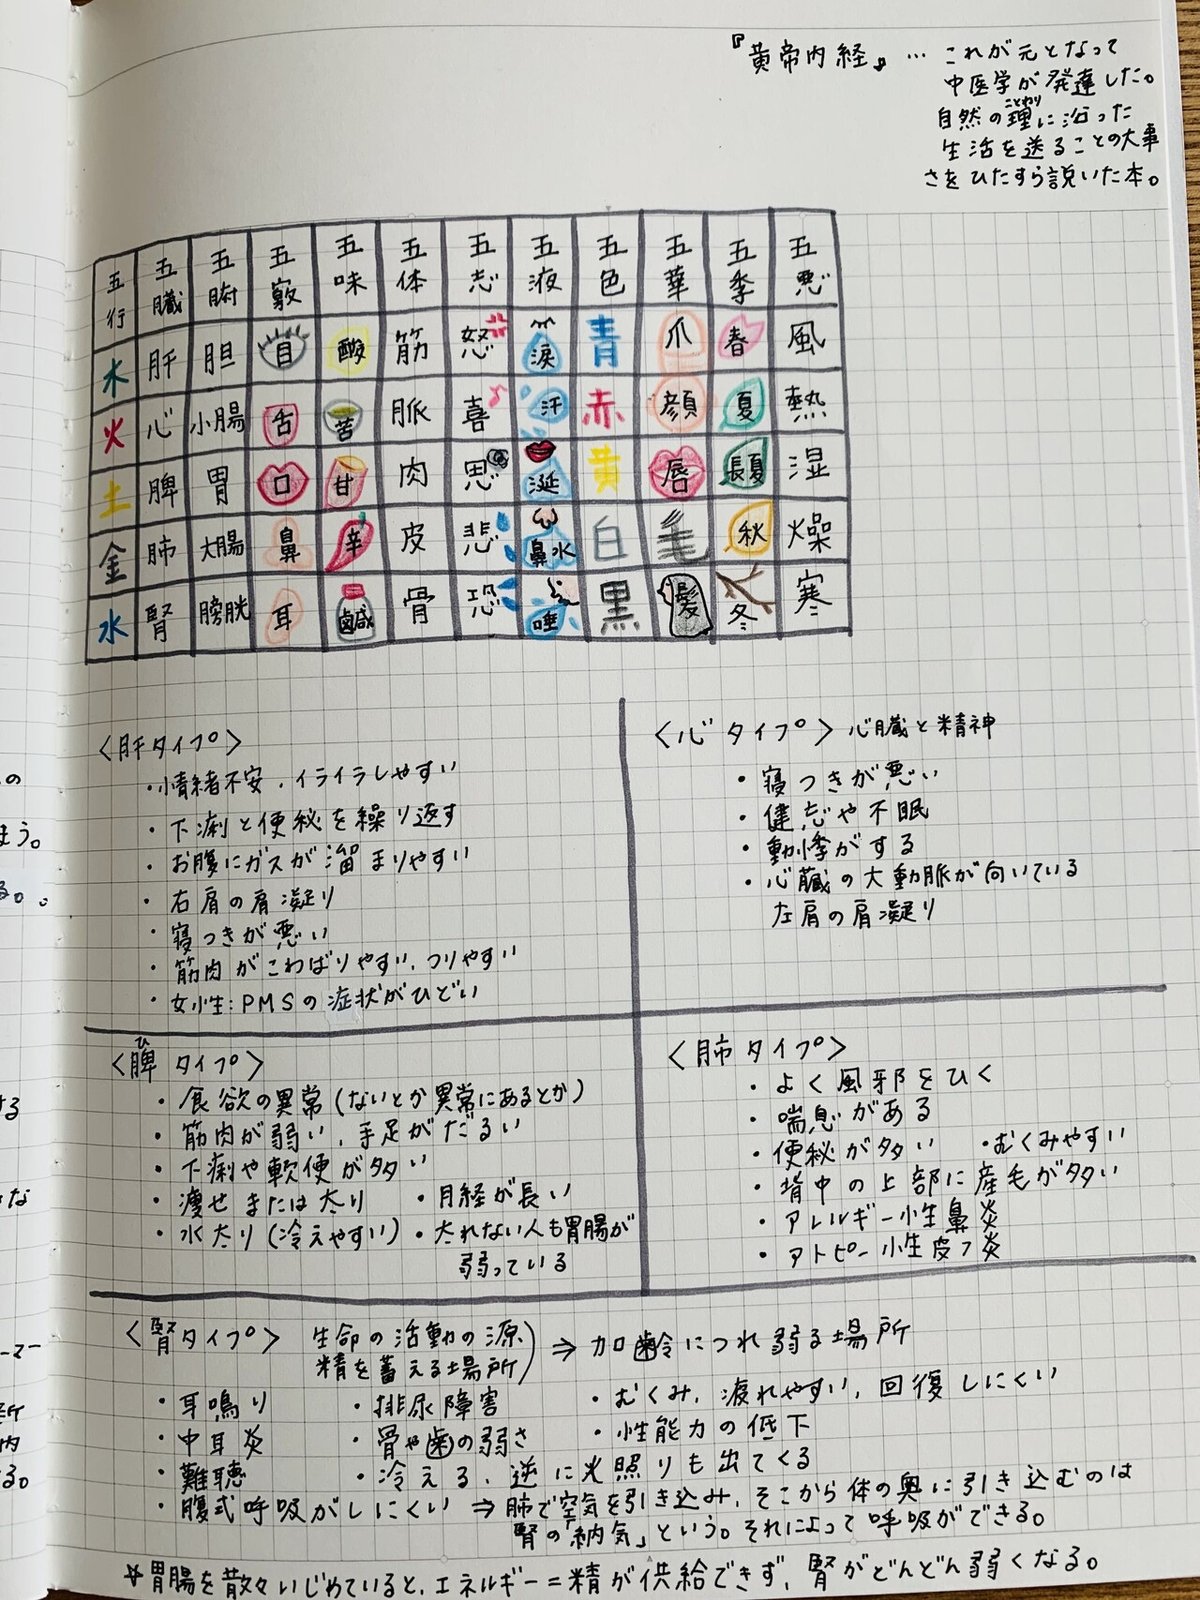 『黄帝内経』… これが元となって
中医学が発達した。
自然の理に沿った
ことわり
生活を送ることの大事
さをひたすら説いた本。
五行 五臓 五腑 五竅 五味 五体 五志 五液 五色 五華 五季 五悪
木 肝 胆 目 酸 筋 怒 涙 青 爪 春 風
火 心 小腸 舌 苦 脈 喜 汗 赤 顔 夏 熱
土 脾 胃 口 甘 肉 思 涎 黄 唇 長夏 湿
金 肺 大腸 鼻 辛 皮 悲 鼻水 白 毛 秋 燥
水 腎 膀胱 耳 鹹 骨 恐 唾 黒 髪 冬 寒
〈肝タイプ〉
・情緒不安、イライラしやすい
・下痢と便秘を繰り返す
・お腹にガスが溜まりやすい
・右肩の肩凝り
・寝つきが悪い
・筋肉がこわばりやすい、つりやすい
・女性:PMSの症状がひどい
〈心タイプ〉心臓と精神
・寝つきが悪い
・健忘や不眠
・動悸がする
・心臓の大動脈が向いている
左肩の肩凝り
ひ
〈脾タイプ〉
・食欲の異常(ないとか異常にあるとか)
・筋肉が弱い、手足がだるい
・下痢や軟便が多い
・痩せまたは太り ・月経が長い
・水太り(冷えやすい) ・太れない人も胃腸が
弱っている
〈肺タイプ〉
・よく風邪をひく
・喘息がある
・便秘が多い ・むくみやすい
・背中の上部に産毛が多い
・アレルギー性鼻炎
・アトピー性皮フ炎
〈腎タイプ〉 生命の活動の源
精を蓄える場所) ⇒ 加齢につれ弱る場所
・耳鳴り ・排尿障害 ・むくみ、疲れやすい、回復しにくい
・中耳炎 ・骨や歯の弱さ ・性能力の低下
・難聴 ・冷える、逆に火照りも出てくる
・腹式呼吸がしにくい ⇒ 肺で空気を引き込み、そこから体の奥に引き込むのは
腎の「納気」という。それによって呼吸ができる。
☆胃腸を散々いじめていると、エネルギー=精が供給できず、腎がどんどん弱くなる。
の
まう。
る。
ける
な
る。